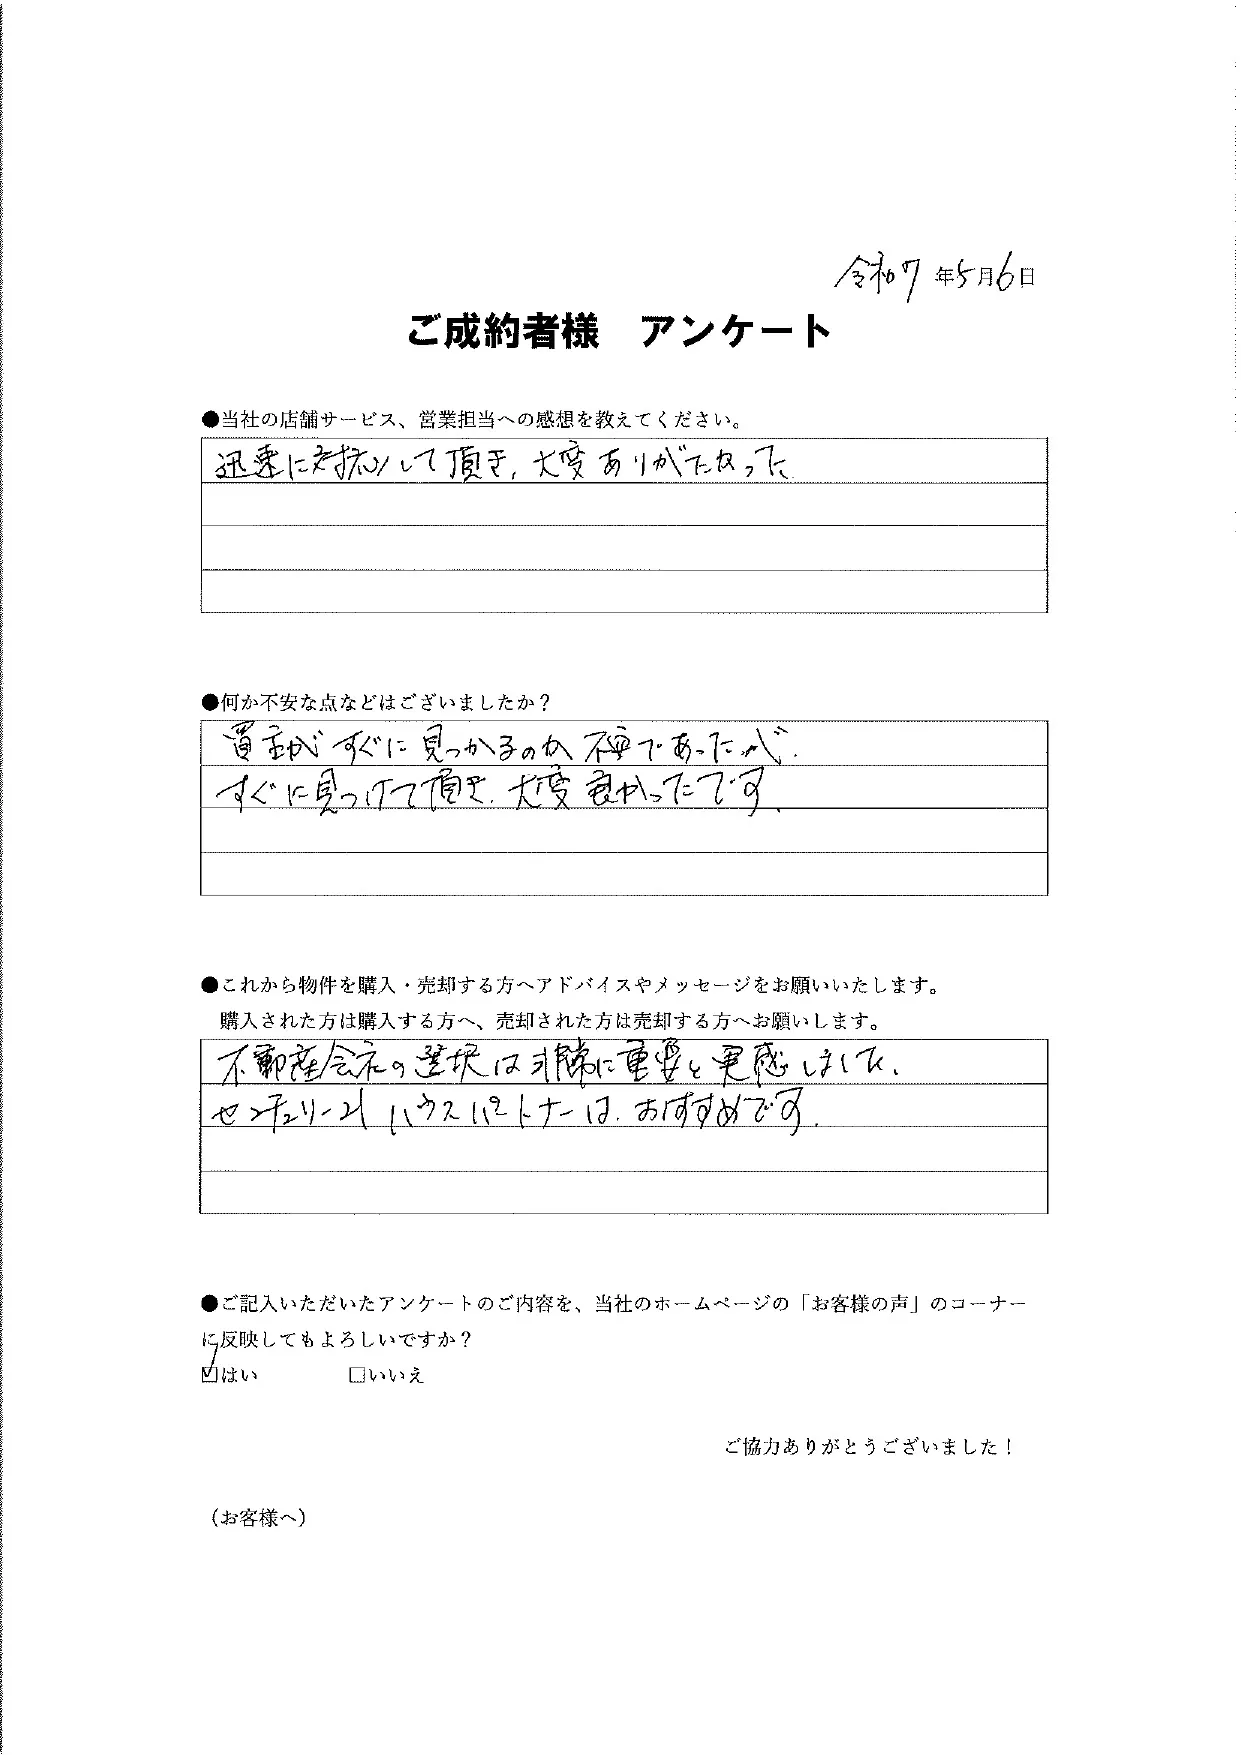 令和7年5月6日
ご成約者様 アンケート
●当社の店舗サービス、営業担当への感想を教えてください。
迅速に対応して頂き、大変ありがたかった
●何か不安な点などはございましたか？
買主がすぐに見つかるのか不安であったが、
すぐに見つけて頂き、大変良かったです。
●これから物件を購入・売却する方へアドバイスやメッセージをお願いいたします。
購入された方は購入する方へ、売却された方は売却する方へお願いします。
不動産会社の選択は非常に重要と実感しました。
センチュリー21 ハウスパートナーは、おすすめです。
●ご記入いただいたアンケートのご内容を、当社のホームページの「お客様の声」のコーナー
に反映してもよろしいですか？
☑はい □いいえ
ご協力ありがとうございました！
（お客様へ）